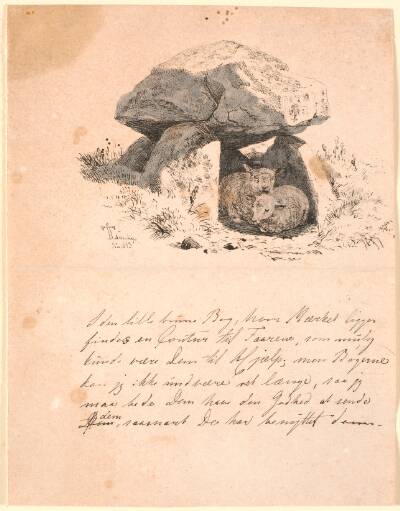 I den lille brune Bog, hvor Mærket ligger
findes en Contur til Taarene, som muligt
kunde være Dem til Hjælp; men Bøgerne
kan jeg ikke undvære ret længe, saa jeg
maa bede Dem have den Godhed at sende
dem, saasnart De har benyttet dem.